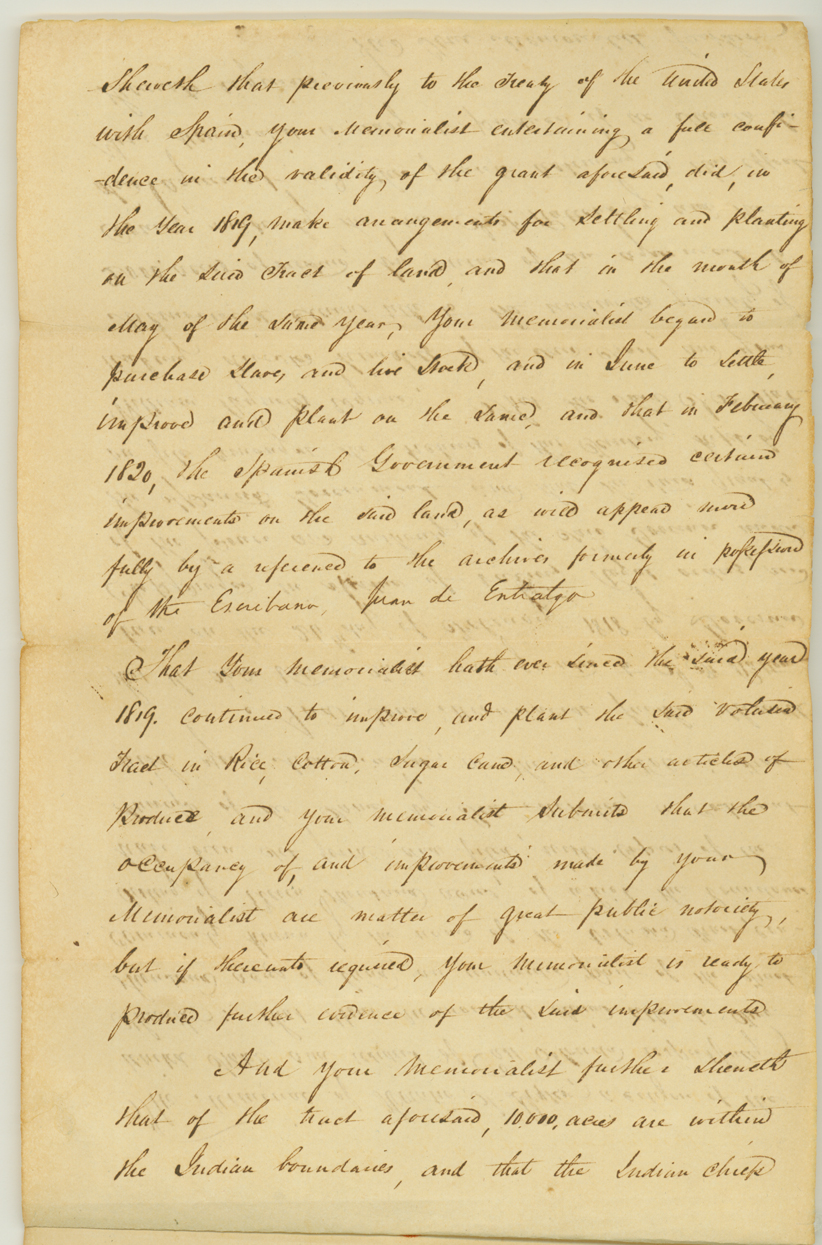 Sheweth that previously to the Treaty of the United States
with Spain, your Memorialist entertaining a full confi-
-dence in the validity of the grant aforesaid, did, in
the Year 1819, make arangements for settling and planting
on the said Tract of land, and that in the month of
May of the same year, Your Memorialist began to
purchase Slaves and live Stock, and in June to settle,
improve and plant on the same, and that in February
1820, the Spanish Government recognised certain
improvements on the said land, as will appear more
fully by a reference to the archives formerly in possession
of the Escribano, Juan de Entralgo
That Your Memorialist hath ever since the said year
1819. continued to improve, and plant the said Volusia
Tract in Rice, Cotton, Sugar Cane, and other articles of
Produce, and your Memorialist submits that the
occupancy of, and improvements made by your
Memorialist are matter of great public notoriety,
but if thereunto required, your Memorialist is ready to
produce further evidence of the said improvements
And your Memorialist further sheweth
that of the tract aforesaid, 10,000, acres are within
the Indian boundaries, and that the Indian chiefs